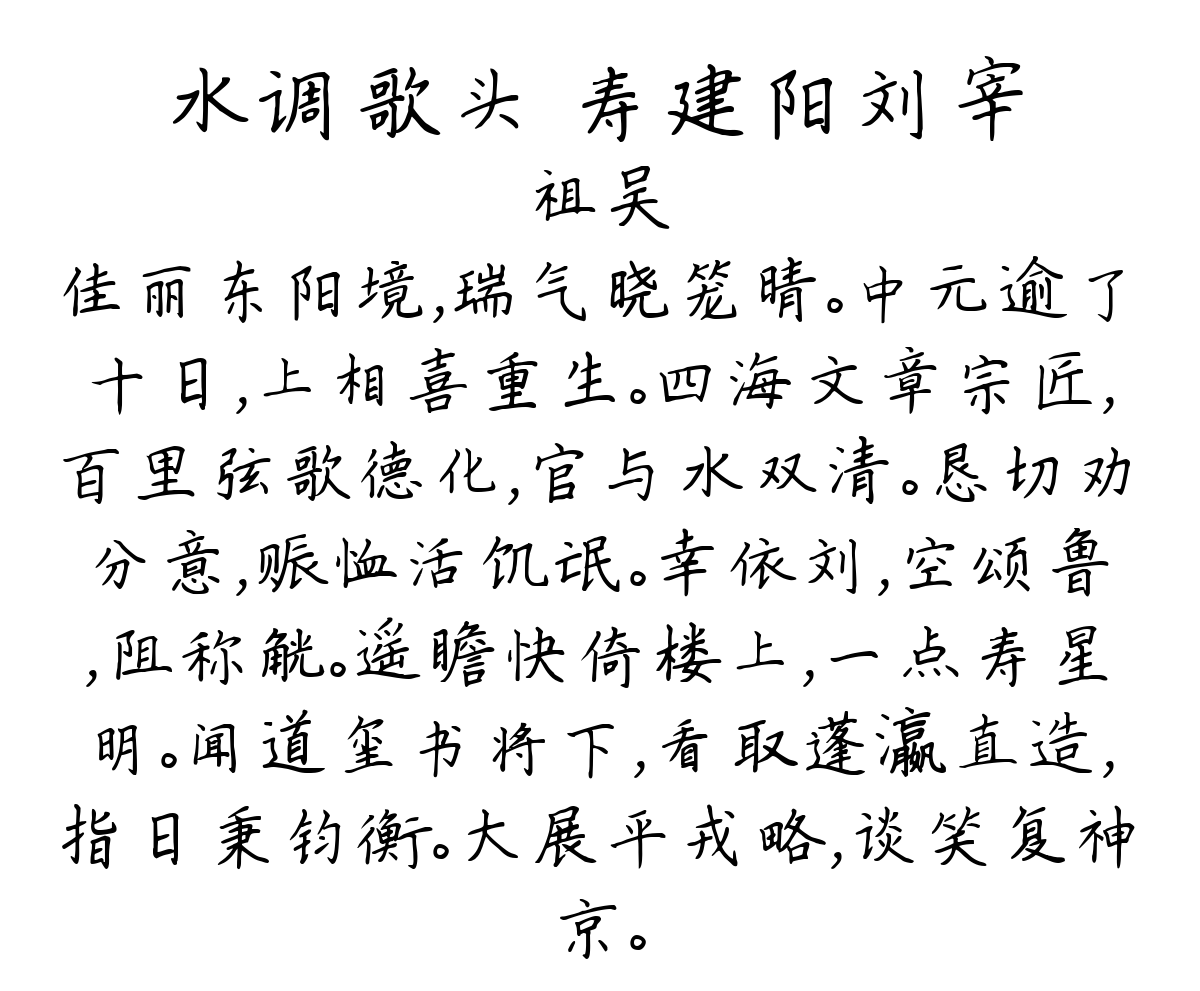 水调歌头 寿建阳刘宰
祖吴
佳丽东阳境,瑞气晓笼晴。中元逾了
十日,上相喜重生。四海文章宗匠,
百里弦歌德化,官与水双清。恳切劝
分意,赈恤活饥氓。幸依刘,空颂鲁
,阻称觥。遥瞻快倚楼上,一点寿星
明。闻道玺书将下,看取蓬瀛直造,
指日秉钧衡。大展平戎略,谈笑复神
京。